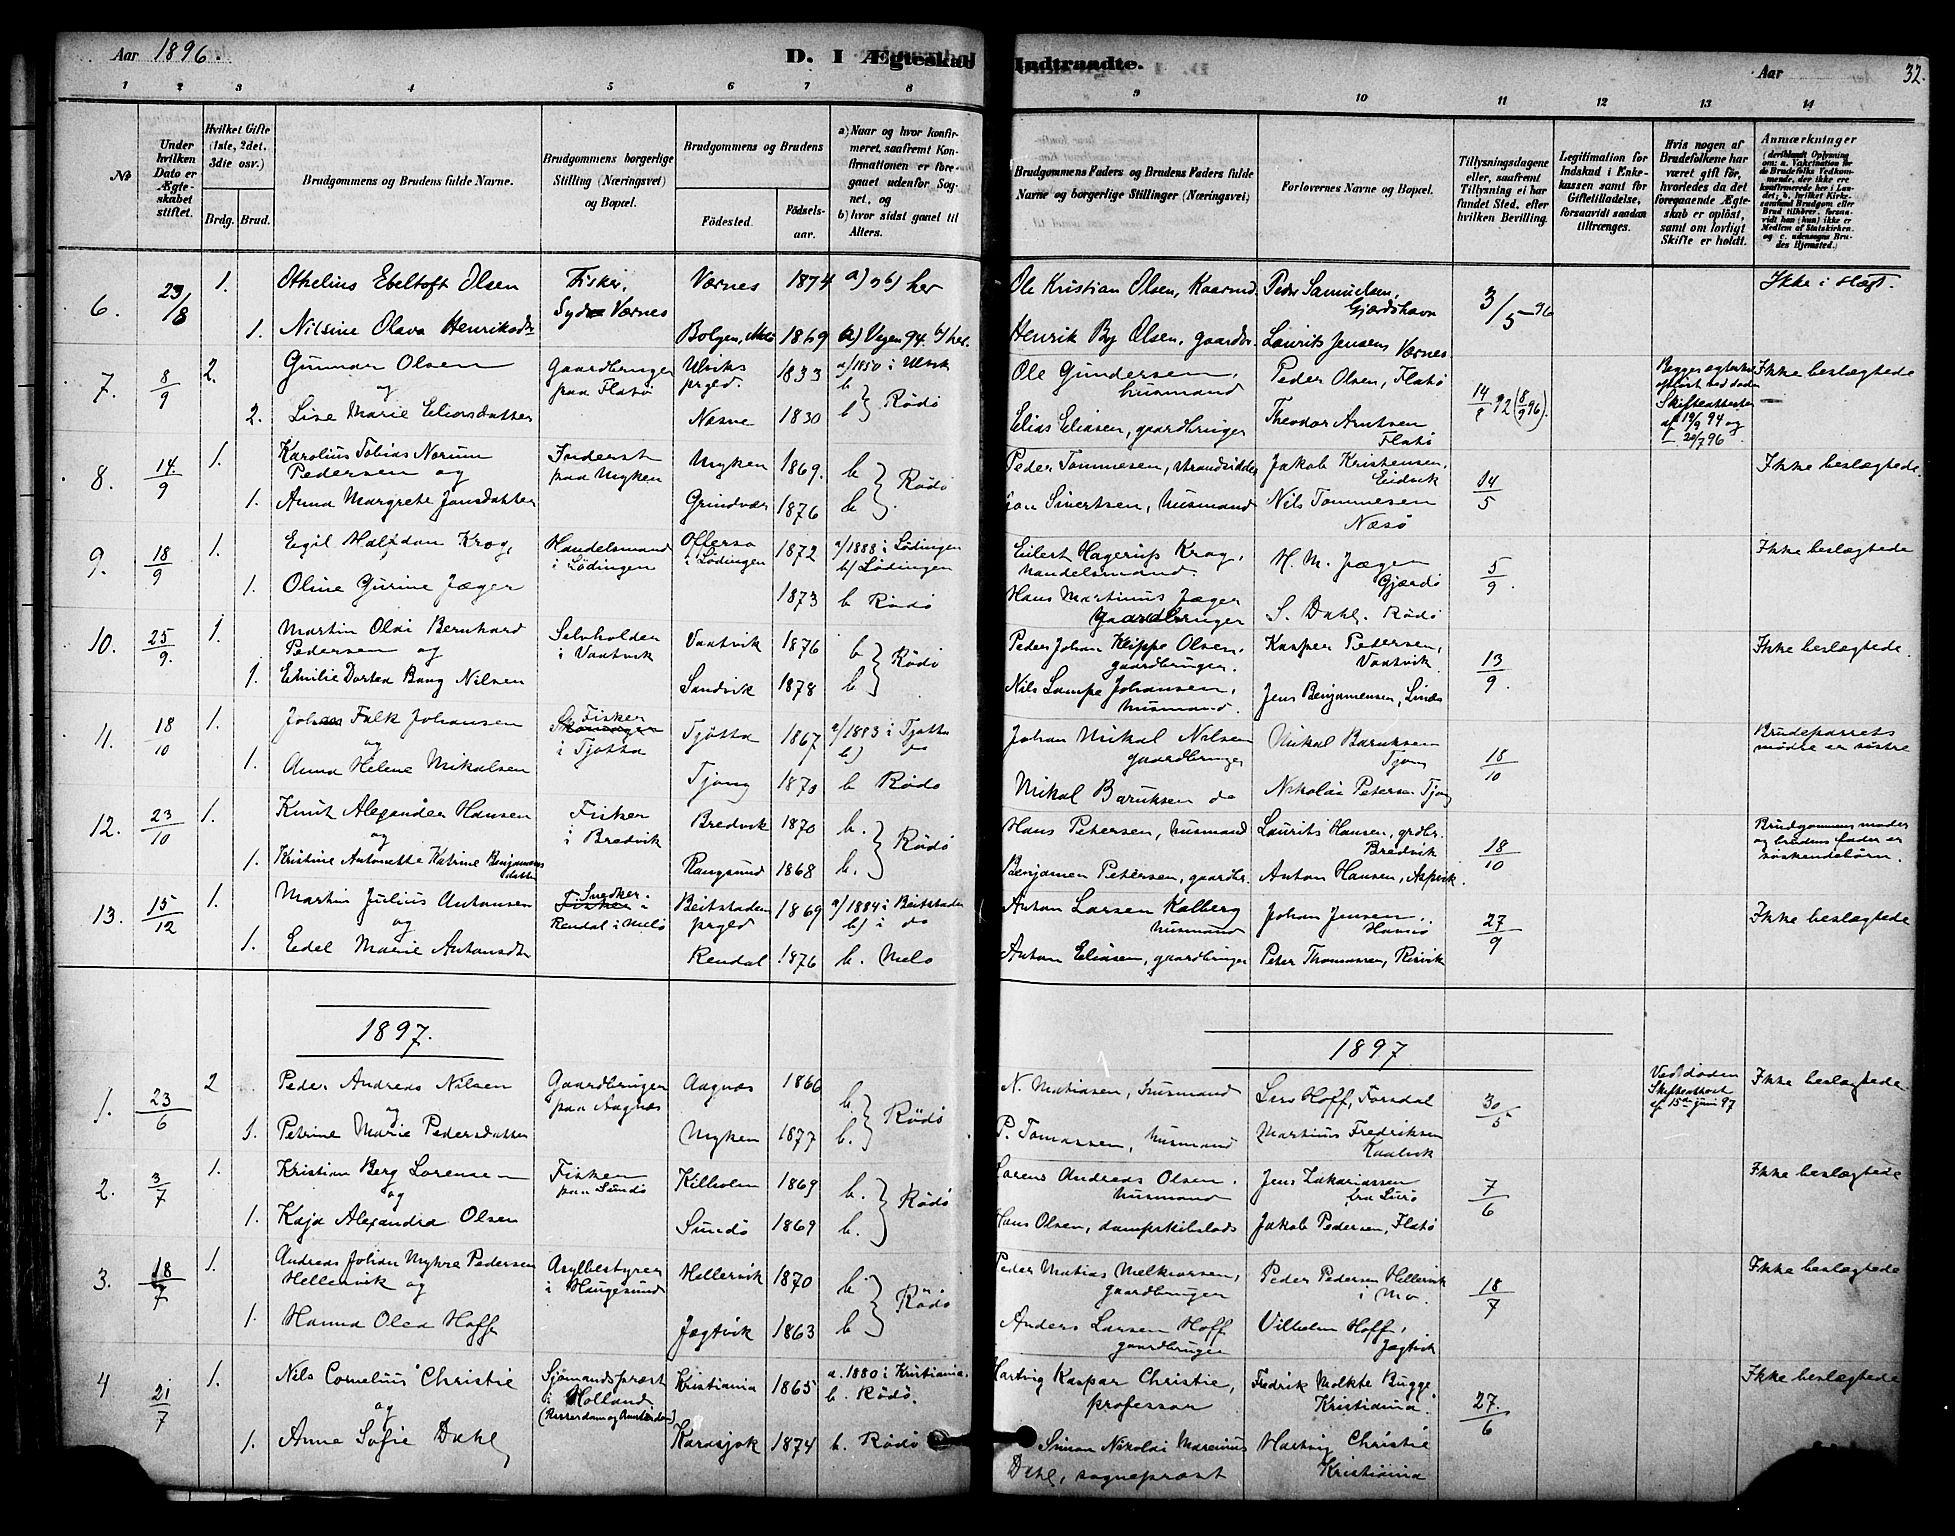 Aar 1896.
D. I Ægteskab Indtraadte.
Aar
32.
1 2 3 4 5 6 7 8 9 10 11 12 13 14
No
Under hvilken Dato er Ægteskabet stiftet.
Hvilket Gifte (1ste, 2det, 3die osv.)
Brdg. Brud.
Brudgommens og Brudens fulde Navne.
Brudgommens borgerlige Stilling (Næringsvei) og Bopæl.
Brudgommens og Brudens
Fødested.
Fødselsaar.
a) Naar og hvor konfirmeret, saafremt Konfirmationen er foregaaet udenfor Sognet, og
b) hvor sidst gaaet til Alters.
Brudgommens Faders og Brudens Faders fulde Navne og borgerlige Stillinger (Næringsvei)
Forlovernes Navne og Bopæl.
Tillysningsdagene eller, saafremt Tillysning ei har fundet Sted, efter hvilken Bevilling.
Legitimation for Indskud i Enkekassen samt for Giftetilladelse, forsaavidt saadan tiltrænges.
Hvis nogen af Brudefolkene har været gift før, hvorledes da det foregaaende Ægteskab er opløst, samt om lovligt Skifte er holdt.
Anmærkninger
6. 23/8 1. Othelius Ebeltoft Olsen Fisker, Værnes 1874 a) & b) her Ole Kristian Olsen, Peder Samuelsen, Gjærdshavn 3/5-96 Ikke i Slægt.
1. Nilsine Olava Henriksdtr Bolgen, Melø 1869 94. b) her. Henrik By Olsen, gaardbr. Laurits Jensen Værnes
7. 8/9 2. Gunnar Olsen Gaardbruger Ulviks prgjd. 1833 a/1850 i Ulvik Ole Gundersen, husmand Peder Olsen, Flatø 14/8 92 (8/9 96). Ikke beslægtede
og paa Flatø b
2. Lise Marie Eliasdatter Næsne 1830 b Rödö Elias Eliasen, gaardbruger Theodor Arntsen Flatø
Skifteattester af 19/9 94 og
8. 14/9 1. Karolius Tobias Norum Pedersen og Inderst paa Myken Myken 1869. b Rödö Peder Tommesen, strandsidder Jakob Kristensen, 14/5 Ikke beslægtede
1. Anna Margrete Jonsdatter Grindvær 1876 b Jon Sivertsen, husmand Nils Tommesen Næsø
9. 18/9 1. Egil Halfdan Krog, Handelsmand i Lødingen Offersø i Lødingen 1872 a/1888 i Lødingen b/ Lødingen Eilert Hagerup Krog, handelsmand. H. M. Jæger Gjærdø 5/9. Ikke beslægtede
1. Oline Gurine Jæger 1873 b Rödö Hans Martinus Jæger Gaardbruger S. Dahl. Rödö
10. 25/9. 1. Martin Olai Bernhard Pedersen og Selvholden i Vaatvik Vaatvik 1876 b Rödö Peder Johan Klippe Olsen, gaardbruger. Kasper Pedersen, Vaatvik 13/9. Ikke beslægtede.
1. Emilie Dortea Bang Nilsen Sandvik 1878 b Nils Lampe Johansen, husmand. Jens Benjamensen,
11. 18/10 1. Johan Falk Johansen Fisker i Tjøtta Tjøtta 1867 a/1883 i Tjøtta b) do Johan Mikal Nilsen gaardbruger Mikal Baruksen Tjong 18/10 Brudeparrets mødre er søstre
og
1. Anna Helene Mikalsen Tjong 1870 b Rödö Mikal Baruksen do Nikolai Petersen Tjong
12. 23/10 1. Knut Alexander Hansen Fisker i Bredvik Bredvik 1870 b. Rödö Hans Petersen, husmand Laurits Hansen, grdbr. Bredvik 18/10 Brudgommens moder og brudens fader er søskendebørn.
og
1. Kristine Antonette Katrine Benjaminsdatter Rangsund 1868 b. Benjamen Petersen, gaardbr. Anton Hansen, Aspvik.
13. 15/12 1. Martin Julius Antonsen Snedker i Rendal i Melö Beitstaden prgjd 1869 a/1884 i Beitstaden b) i do Anton Larsen Kalberg husmand Johan Jensen, 27/9 Ikke beslægtede
og
1. Edel Marie Antonsdtr Rendal 1876 b. Melö Anton Eliasen, gaardbruger Peter Thomassen, Risvik
1897. 1897
1. 23/6 2 Peder Andreas Nilsen Gaardbruger paa Aagnæs Aagnæs 1866 b. Rödö N. Matiasen, husmand Lars Hoff, Forsdal 30/5 Ved døden Skifteattest af 15de juni 97 Ikke beslægtede.
og
1. Petrine Marie Pedersdatter Myken 1877 b. P. Tomassen, husmand Martinus Fredriksen
2. 3/7 1. Kristian Berg Lorensen Fisker paa Sundø Kilholm 1869 b. Rödö Lorens Andreas Olsen, husmand Jens Zakariassen fra Lurø 7/6 Ikke beslægtede
og
1. Kaja Alexandra Olsen Sundø 1869 b. Hans Olsen, dampskibslods Jakob Pedersen, Flatø
3. 18/7 1. Andreas Johan Myhre Pedersen Hellervik og Asylbestyrer i Haugesund Hellervik 1870 b. Rödö Peder Matias Melkiorsen, gaardbruger Peder Pedersen Hellervik i Mo. 18/7 Ikke beslægtede
1. Hanna Olea Hoff Jægtvik 1863 b Anders Larsen Hoff gaardbruger Vilhelm Hoff, Jægtvik
4 21/7 1. Nils Cornelius Christie Sjömandsprest i Holland Kristiania 1865 a. 1880 i Kristiania. b. Rödö. Hartvig Kaspar Christie, professor Fredrik Moltke Bugge, Kristiania. 27./6 Ikke beslægtede
og
1. Anne Sofie Dahl Karasjok 1874 b. Rödö Simon Nikolai Marenius Dahl, sogneprest Hartvig Christie Kristiania